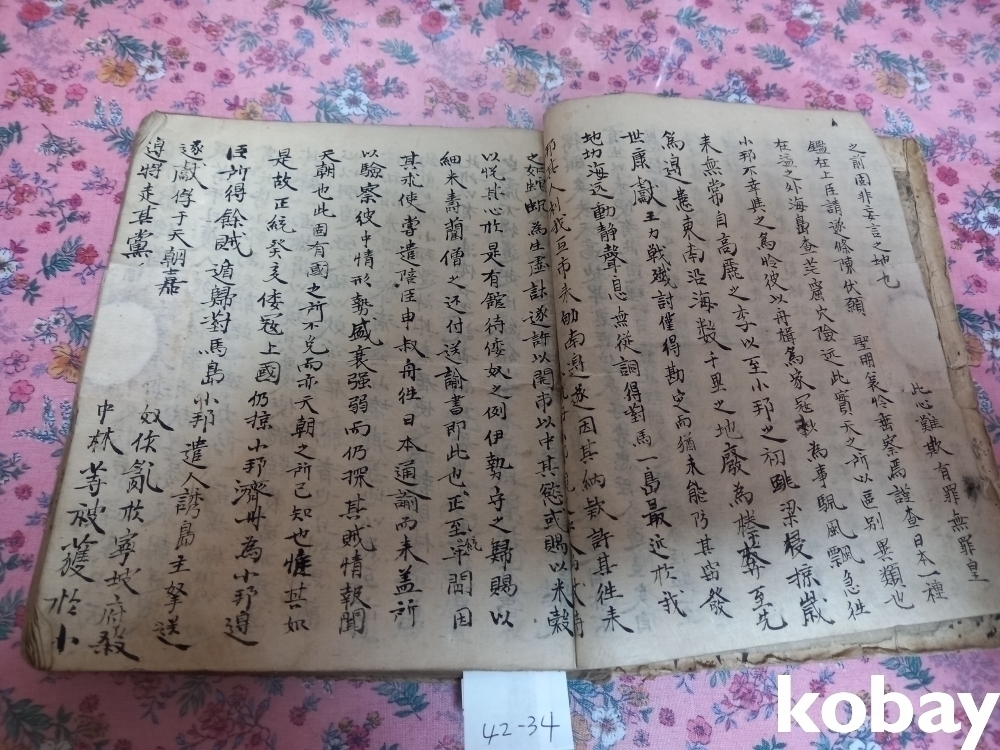 之前固非妄言之地也 此心難欺有罪無罪皇
鑑在上臣請逐條陳伏願 聖明哀怜密察焉謹查日本一種
在溟之外海島查茫窟穴險远此實天之所以區別異類也
小邦不幸與之為怜彼以舟楫篤家冦秋為事颿風飄忽徃
来無常自高麗之季以至小邦之初跳梁侵掠歲
篤邊患東南沿海数千里之地廢為榛莽至先
世康獻王力戦殲討僅得勘定而猶未能防其窃發
地切海远動静聲息無從詗得對馬一島最近於我
之如蛇虺為生虚計遂許以開市以中其慾或賜以米穀
以悅其心於是有舘待倭奴之例伊勢守之歸賜以
細米壽藺僧之还付送諭書即此也正至年間因
統
其求使嘗遣陪臣申叔舟徃日本通諭而来盖所
以驗察彼中情形勢盛衰强弱而仍探其賊情報聞
天朝也此固有國之所不免而亦天朝之所已知也惟其如
是故正統癸亥倭冦上國仍掠小邦濟州為小邦邊
臣所得餘賊遁歸對馬島小邦遣人誘島主拏送
遂獻俘于天朝嘉 奴俟亂於寧坡府殺
邊將走其黨 中林等被獲於小
42-34
kobay